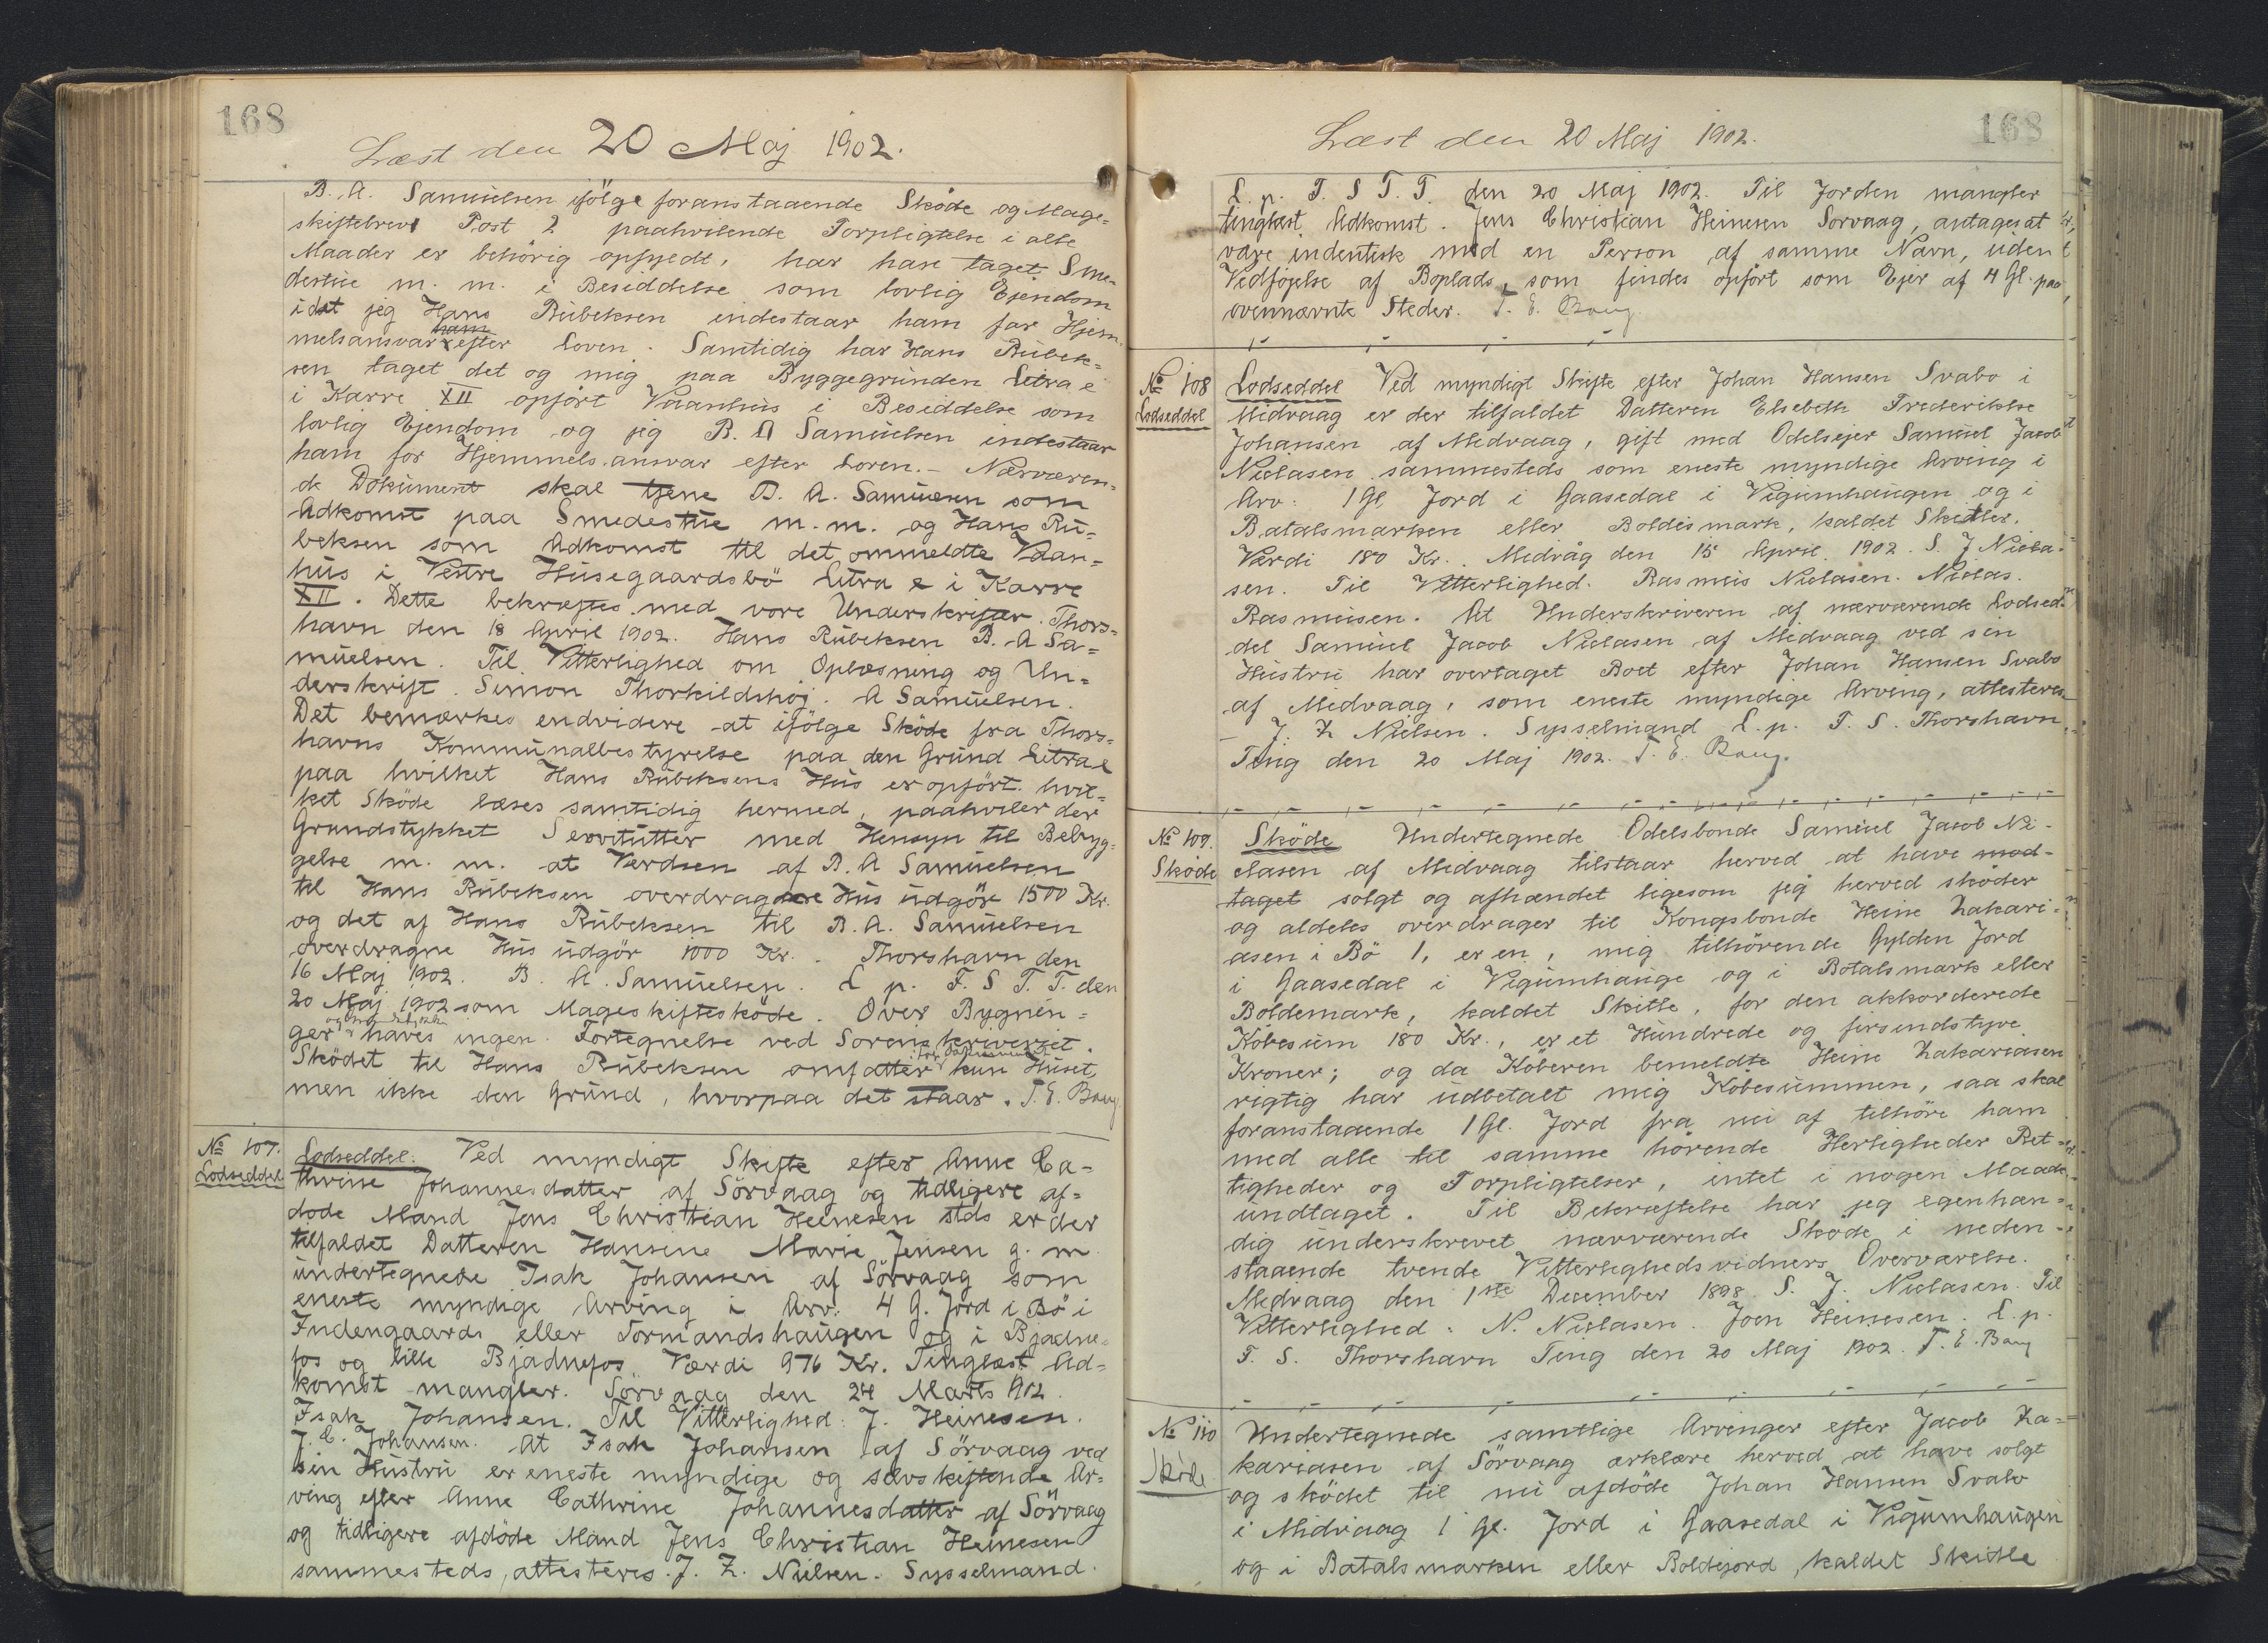 168
Læst den 20 Maj 1902.
B. A. Samuelsen ifölge foranstaaende Sköde og Mage-
skiftebrevs Post 2 paahvilende Forpligtelse i alle
Maader er behörig opfyldt, har han taget Sme-
destue m. m. i Besiddelse som lovlig Ejendom
idet jeg Hans Rubeksen indestaar ham for Hjem-
ham
melsansvar efter Loven. Samtidig har Hans Rubek-
sen taget det og mig paa Byggegrunden Litra e
i Karre XII opfört Vaanhus i Besiddelse som
lovlig Ejendom og jeg B. A Samuelsen indestaar
ham for Hjemmels.ansvar efter Loven. - Nærværen-
de Dokument skal tjene B. A. Samuesen som
Adkomst paa Smedestue m.m. og Hans Ru-
beksen som Adkomst til det ommeldte Vaan-
hus i Vestre Husegaardsbö Litra e i Karre
XII. Dette bekræftes med vore Underskrifter. Thors-
havn den 18 April 1902. Hans Rubeksen B. A Sa-
muelsen. Til Vitterlighed om Oplæsning og Un-
derskrift. Simon Thorkildshöj. A Samuelsen.
Det bemærkes endvidere at ifölge Sköde fra Thors-
havns Kommunalbestyrelse paa den Grund Litra e
paa hvilket Hans Rubeksens Hus er opfört. hvil-
ket Sköde læses samtidig hermed, paahviler der
Grundstykket Servitutter med Hensyn til Bebyg-
gelse m. m. at Værdien af B. A Samuelsen
til Hans Rubeksen overdragne Hus udgör 1500 Kr.
og det af Hans Rubeksen til B. A. Samuelsen
overdragne Hus udgör 1000 Kr. . Thorshavn den
16 Maj 1902. B. A. Samuelsen. L p. F. S T. T. den
20 Maj 1902 som Mageskiftesköde. Over Bygnin-
ger haves ingen Fortegnelse ved Sorenskriveriet.
Sködet til Hans Rubeksen omfatter kun Huset,
men ikke den Grund, hvorpaa det staar. T. E. Bang.
No 107.
Lodseddel
Lodseddel. Ved myndigt Skifte efter Anne Ca-
thrine Johannesdatter af Sörvaag og tidligere af-
döde Mand Jens Christian Heinesen stds er der
tilfaldet Datteren Hansine Marie Jensen g. m
undertegnede Isak Johansen af Sörvaag som
eneste myndige Arving i Arv: 4 G. Jord i Bö i
Indengaards eller Tormandshaugen og i Bjadne-
fos og lille Bjadnefos Værdi 976 Kr. Tinglæst Ad-
komst mangler. Sörvaag den 24 Marts 1902.
Isak Johansen. Til Vitterlighed: J. Heinesen.
J. C. Johansen. At Isak Johansen af Sörvaag ved
sin Hustru er eneste myndige og selvskiftende Ar-
ving efter Anne Cathrine Johannesdatter af Sörvaag
og tidligere afdöde Mand Jens Christian Heinesen
sammesteds, attesteres. J. Z. Nielsen. Sysselmand.
168
Læst den 20 Maj 1902.
L. p. F. S T. T. den 20 Maj 1902. Til Jorden mangler
tinglæst Adkomst. Jens Christian Heinesen Sorvaag, antages at
være indentisk med en Person af samme Navn, uden
Vedföjelse af Boplads, som findes opfört som Ejer af 4 Gl. paa
ovennævnte Steder. T. E. Bang.
No 108
Lodseddel
Lodseddel Ved myndigt Skifte efter Johan Hansen Svabo i
Midvaag er der tilfaldet Datteren Elsebeth Frederikke
Johansen af Midvaag, gift med Odelsejer Samuel Jacob
Niclasen sammesteds som eneste myndige Arving i
Arv: 1 Gl Jord i Gaasedal i Vigumhaugen og i
Batalsmarken eller Boldismark, kaldet Skitler.
Værdi 180 Kr. . Midvåg den 15 April 1902. S. J Nicla-
sen. Til Vitterlighed. Rasmus Niclasen. Niclas.
Rasmusen. At Underskriveren af nærværende Lodsed-
del Samuel Jacob Niclasen af Midvaag ved sin
Hustru har overtaget Boet efter Johan Hansen Svabo
af Midvaag, som eneste myndige Arving, attesteres
- J. Z Nielsen. Sysselmand L. p. F. S. Thorshavn
Ting den 20 Maj 1902. T. E. Bang.
No 109.
Sköde
Sköde Undertegnede Odelsbonde Samuel Jacob Ni-
clasen af Midvaag tilstaar herved at have mod-
taget solgt og afhændet ligesom jeg herved sköder
og aldeles overdrager til Kongsbonde Heine Zakari-
asen i Bö 1, er en, mig tilhörende Gylden Jord
i Gaasedal i Vigumhauge og i Botalsmark eller
Boldemark, kaldet Skitle, for den akkorderede
Köbesum 180 Kr., er et Hundrede og firsindstyve
Kroner; og da Köberen bemeldte Heine Zakariasen
rigtig har udbetalt mig Köbesummen, saa skal
foranstaaende 1 Gl. Jord fra nu af tilhöre ham
med alle til samme hörende Herligheder Ret-
tigheder og Forpligtelser, intet i nogen Maade
undtaget. Til Bekræftelse har jeg egenhæn-
dig underskrevet nærværende Sköde i neden-
staaende tvende Vitterlighedsvidners Overværelse.
Midvaag den 1ste December 1898. S. J. Niclasen. Til
Vitterlighed: N. Niclasen. Joen Heinesen. L. p.
F. S. Thorshavn Ting den 20 Maj 1902. T. E. Bang
No 110
Sköde
Undertegnede samtlige Arvinger efter Jacob Za-
kariasen af Sörvaag erklære herved at have solgt
og sködet til nu afdöde Johan Hansen Svabo
i Midvaag 1 Gl. Jord i Gaasedal i Vigumhaugen
og i Batalsmarken eller Boldejord, kaldet Skitle